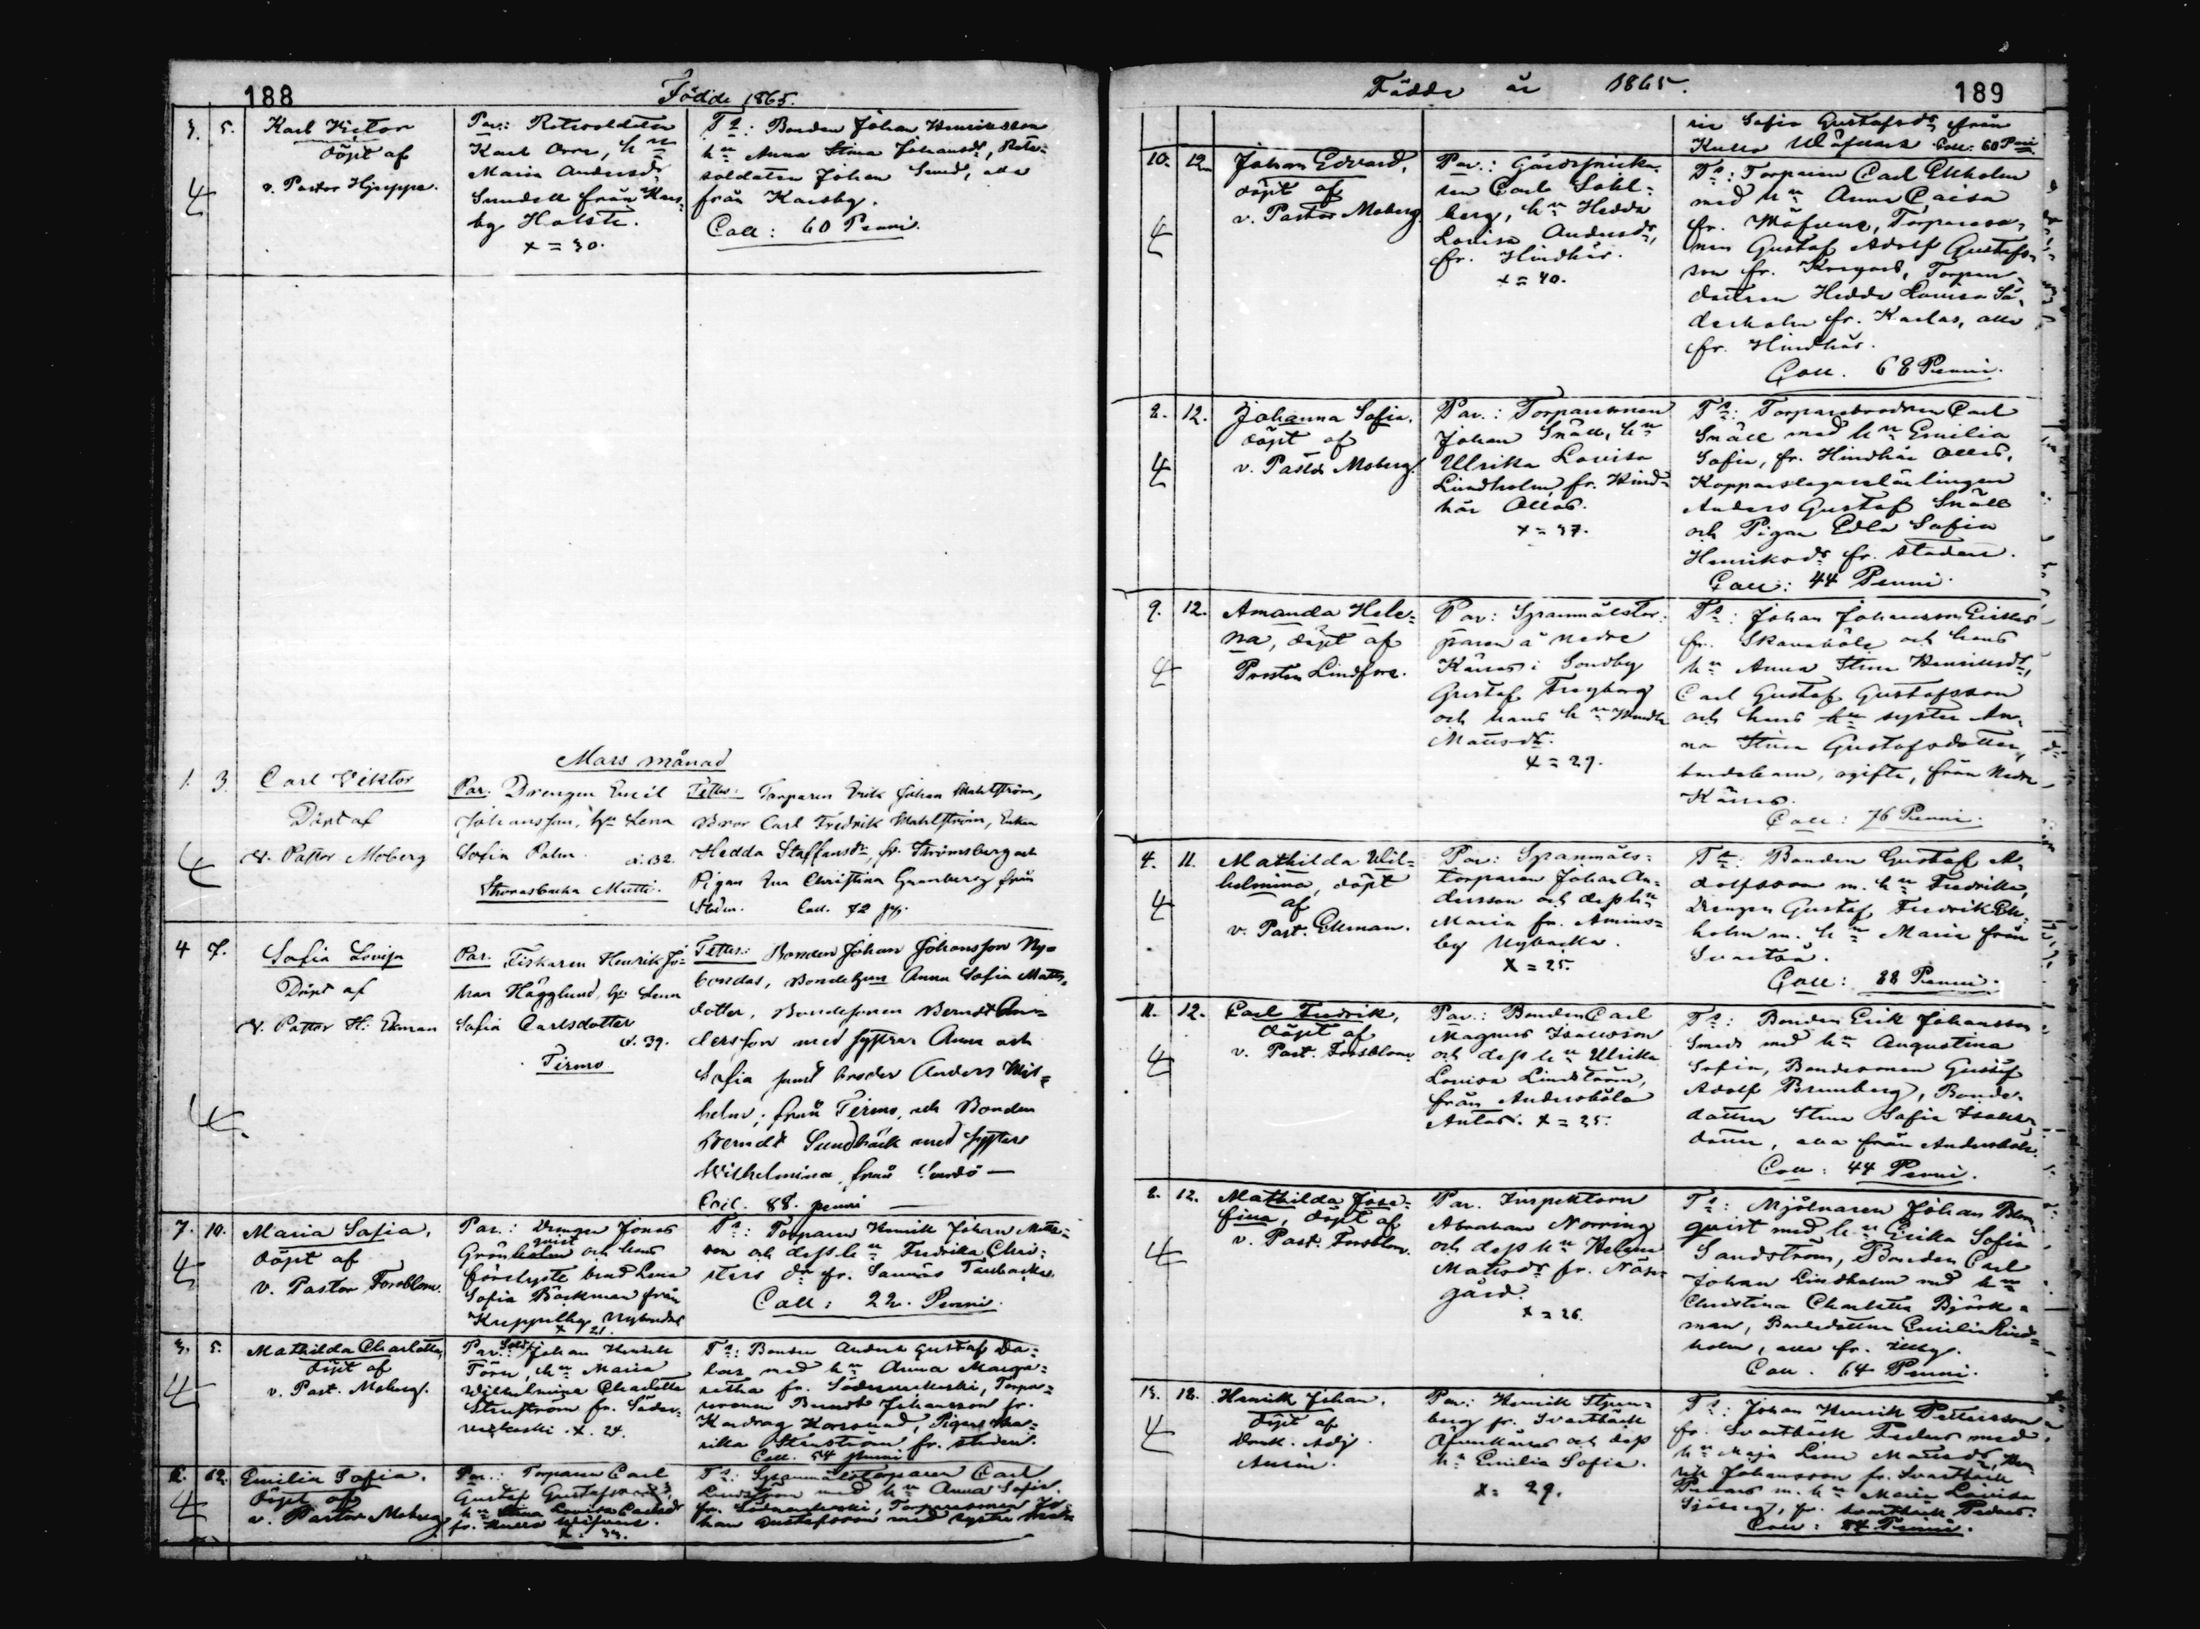 188
Födde 1865.
3. 5. Karl Victor
döpt af
v. Pastor Hjeppe.
Par.: Rotesoldaten
Karl Orre, hu
Maria Andersdr
Sundell från Kars-
by Holste.
x = 30.
Ts: Bonden Johan Henriksson
hu Anna Stina Johansdr, Rote-
soldaten Johan Smed, alla
från Karsby.
Coll: 60 Penni.
Mars månad
1. 3. Carl Viktor
Döpt af
V. Pastor Moberg
Par. Drengen Emil
Johansson, hu Lena
Sofia Palm. x. 32.
Strömsbacka Mutti.
Testes: Torparen Erik Johan Wahlström,
Bror Carl Fredrik Wahlström, Enkan
Hedda Staffansdr, fr. Strömsberg och
Pigan Eva Christina Granberg från
Staden. Coll. 72 p:i.
4 7. Sofia Lovisa
Döpt af
V. Pastor H. Ekman
Par. Fiskaren Henrik Jo-
han Hägglund, hu Lena
Sofia Carlsdotter
x. 39.
Pirmo
Testes: Bonden Johan Johansson Ny-
bondas, Bondehustr. Anna Sofia Matts-
dotter, Bondesonen Berndt An-
dersson med systrar Anna och
Sofia samt broder Anders Wil-
helm, från Pirmo, och Bonden
Berndt Sundbäck med syster
Wilhelmina, från
Coll. 88. penni
7. 10. Maria Sofia,
döpt af
V. Pastor Forsblom.
Par.: Drengen Jonas
Grönqvist och hans
förelupte brud Lena
Sofia Bäckman från
Kreppelby Nybondas
x 21.
Ts: Torparen Henrik Johan Matts-
son och dess hu Fredrika Chri-
sters dr fr. Sannäs Tallbacka.
Coll: 22. Penni.
3. 5. Mathilda Charlotta,
döpt af
v. Past. Moberg.
Par.: Sold. Johan Henrik
Törn, hu Maria
Wilhelmina Charlotta
Stenström fr. Söder-
veckoski. x. 24.
Ts: Bonden Anders Gustaf Da-
las med hu Anna Marga-
retha fr. Söderveckoski, Torpar-
sonen Berndt Johansson fr.
Kardrag Korssund, Pigan Ma-
rika Stenström fr. staden.
Coll. 54 Penni
6. 12. Emilia Sofia,
döpt af
v. Pastor Moberg
Par.: Torparen Carl
Gustaf Gustafsson,
hu Lovisa Carlsdr
fr. Kullo Wäfvars.
x. 33.
Ts: Spannmålstorparen Carl
Lindström med hu Anna Sofia,
fr. Söderveckoski, Torparsonen Jo-
han Gustafsson med syster
Födde år 1865.
189
Sofia Gustafsdr från
Kullo Wäfvars. Coll: 60 Penni.
10. 12. Johan Edvard,
döpt af
v. Pastor Moberg.
Par.: Gårdssnicka-
ren Carl Sohl-
berg, hu Hedda
Lovisa Andersdr,
fr. Hindhår.
x = 40.
Ts: Torparen Carl Ekholm
med hu Anna Caisa
fr. Wäfvars, Torpareso-
nen Gustaf Adolf Gustafs-
son fr. Krogars, Torpare-
dottren Hedda Lovisa Sö-
derholm fr. Karlas, alla
fr. Hindhår.
Coll. 68 Penni.
2. 12. Johanna Sofia,
döpt af
v. Pastor Moberg.
Par.: Torparesonen
Johan Snäll, hu
Ulrika Lovisa
Lindholm, fr. Hind-
hår Ollas.
x = 37.
Ts: Torparebrodren Carl
Snäll med hu Emilia
Sofia, fr. Hindhår Ollas,
Kopparslagarelärlingen
Anders Gustaf Snäll
och Pigan Edla Sofia
Henriksdr fr. staden.
Coll: 44 Penni.
9. 12. Amanda Hele-
na, döpt af
Prosten Lindfors.
Par: Spannmålstor-
paren å Nedre
Kärras i Sondby
Gustaf Freyborg
och hans hu Wendla
Mattsdr.
x = 29.
Ts: Johan Johansson Eriks
fr. Skavaböle och hans
hu Anna Stina Henriksdr,
Carl Gustaf Gustafsson
och hans hu syster An-
na Stina Gustafsdotter,
bondebarn, ogifta, från Nedre
Kärras.
Coll: 76 Penni.
4. 11. Mathilda Wil-
helmina, döpt
af
v. Past. Ekman.
Par: Spanmåls-
torparen Johan An-
dersson och dess hu
Maria fr. Aminns-
by Nybacka.
x = 25.
Ts: Bonden Gustaf A-
dolfsson m. hu Fredrika,
Drengen Gustaf Fredrik Ek-
holm m. hu Maria från
Svartså.
Coll: 88 Penni.
11. 12. Carl Fredrik,
döpt af
v. Past. Forsblom.
Par.: Bonden Carl
Magnus Isaksson
och dess hu Ulrika
Lovisa Lindström,
från Andersböle
Antas. x = 25.
Ts: Bonden Erik Johansson
Smeds med hu Augustina
Sofia, Bondesonen Gustaf
Adolf Brunberg, Bonde-
dottren Stina Sofia Isaks-
dotter, alla från Andersböle.
Coll: 44 Penni.
2. 12. Mathilda Jose-
fina, döpt af
v. Past. Forsblom.
Par. Inspektoren
Abraham Norring
och dess hu Helena
Mattsdr fr. Näse-
gård.
x = 26.
Ts: Mjölnaren Johan Blom-
qvist med hu Erika Sofia
Sandström, Bonden Carl
Johan Lindholm med hu
Christina Charlotta Björk-
man, Bondedottren Emilia Lind-
holm, alla fr. Illby.
Coll. 64 Penni.
15. 18. Henrik Johan,
döpt af
Domk. Adj.
Par.: Henrik Stjern-
berg fr. Svartbäck
Öfverkärras och dess
hu Emilia Sofia.
x = 29.
Ts: Johan Henrik Pettersson
fr. Svartbäck Peders med
hu Maja Lena Mattsdr, Hen-
rik Johansson fr. Svartbäck
Peders m. hu Maria Lovisa
Sjöberg, fr. Svartbäck Peders.
Coll: 84 Penni.